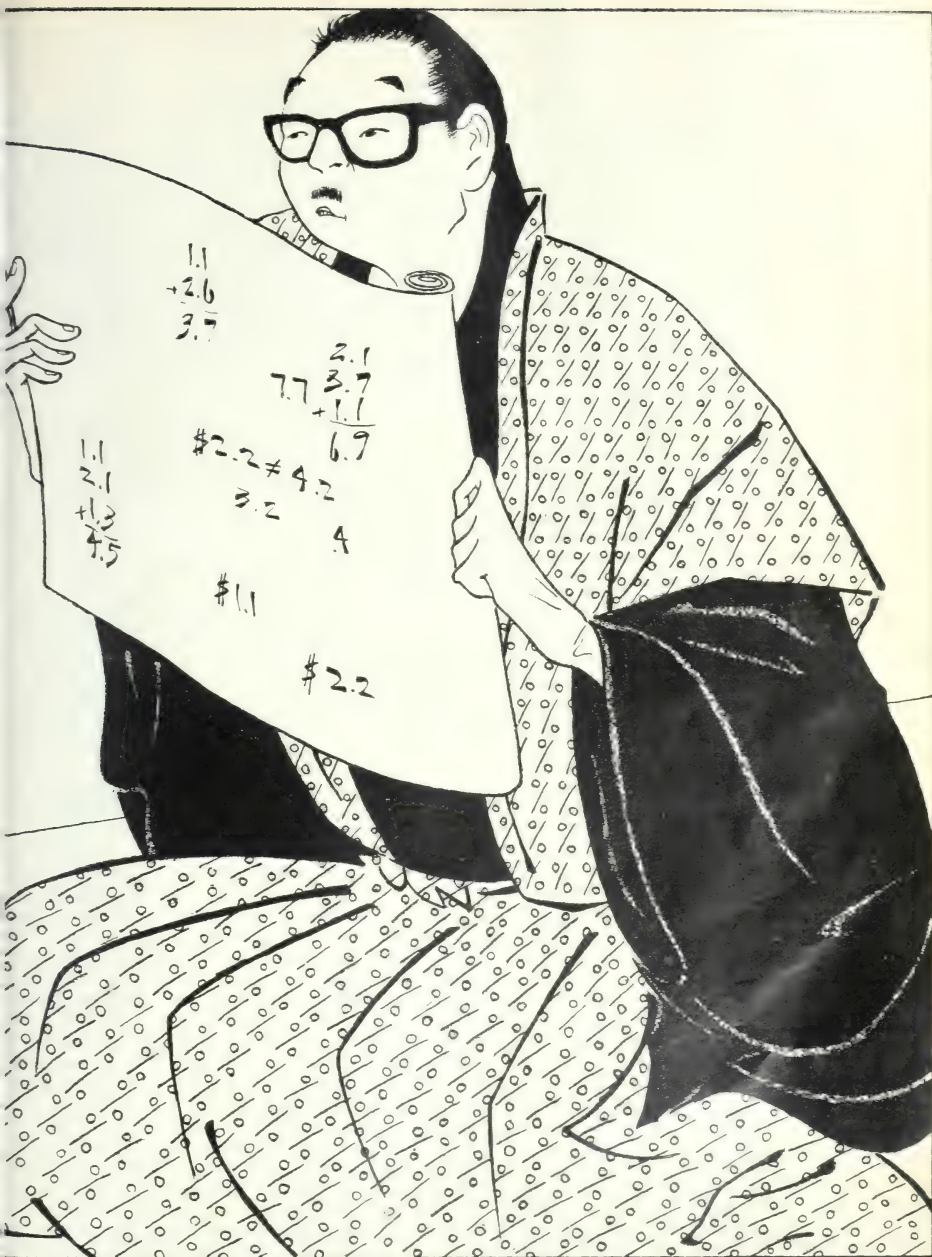 1.1
+2.6
3.7
2.1
7.7 3.7
+1.1
6.9
$2.2 ≠ 4.2
3.2
4
1.1
2.1
+1.3
4.5
$1.1
$2.2